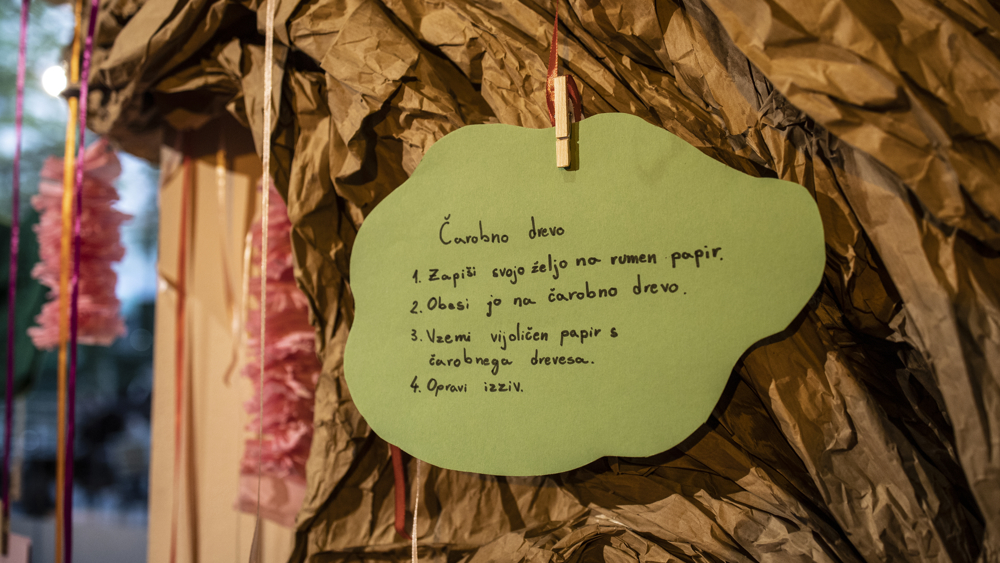 Čarobno drevo
1. Zapiši svojo željo na rumen papir.
2. Obesi jo na čarobno drevo.
3. Vzemi vijoličen papir s
čarobnega drevesa.
4. Opravi izziv.